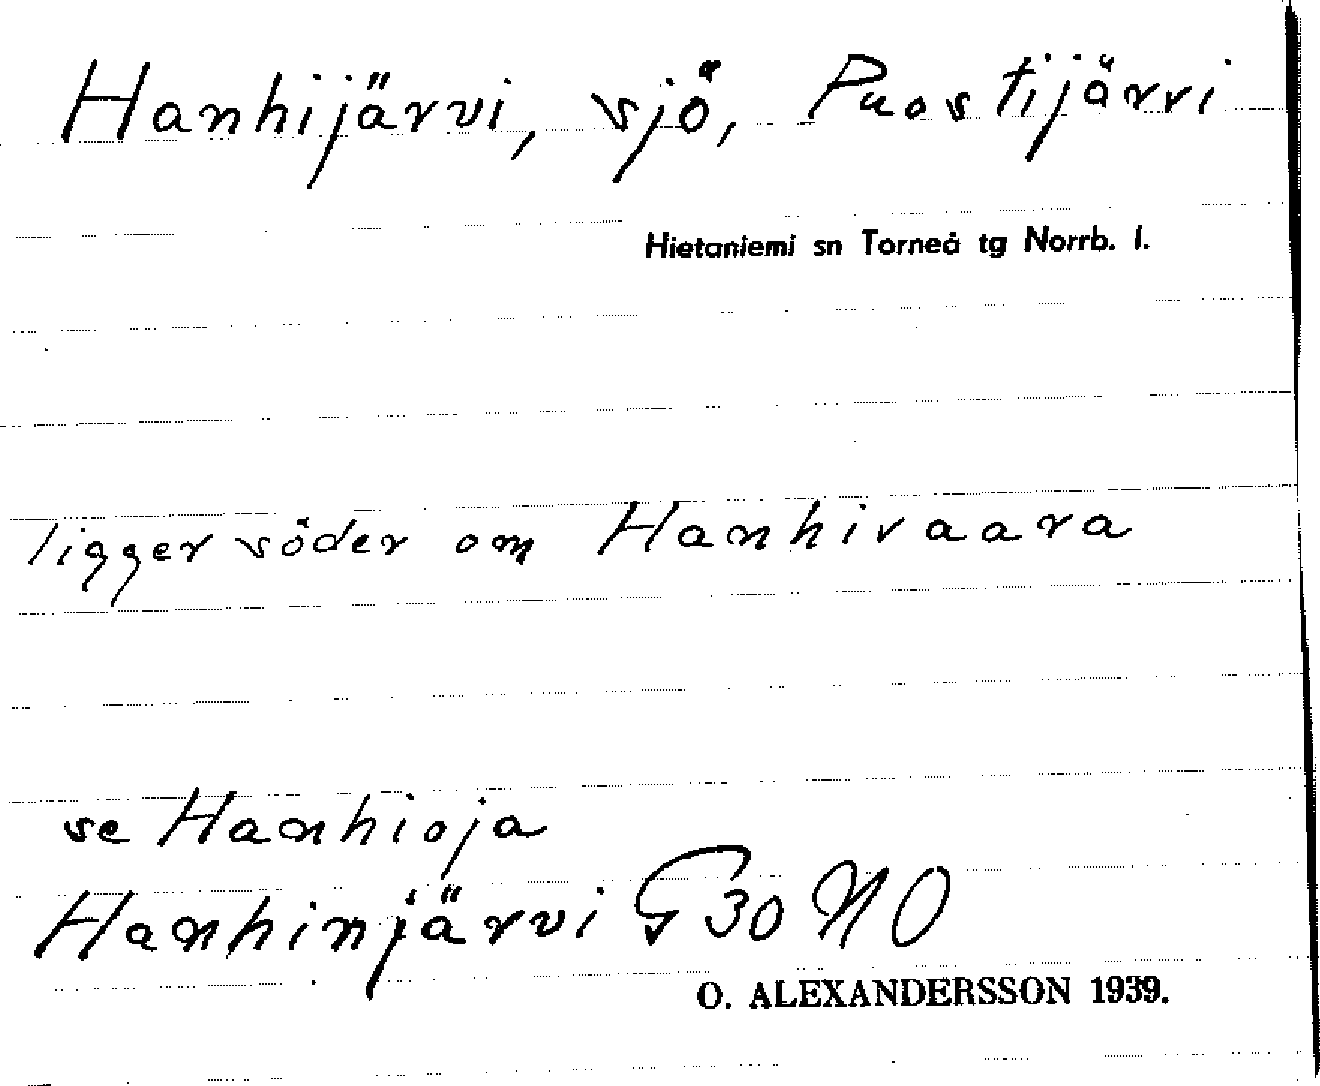 Hanhijärvi, sjö, Puostijärvi
Hietaniemi sn Torneå tg Norrb. l.
ligger söder om Hanhivaara
se Hanhioja
Hanhinjärvi G 30 NO
O. ALEXANDERSSON 1939.